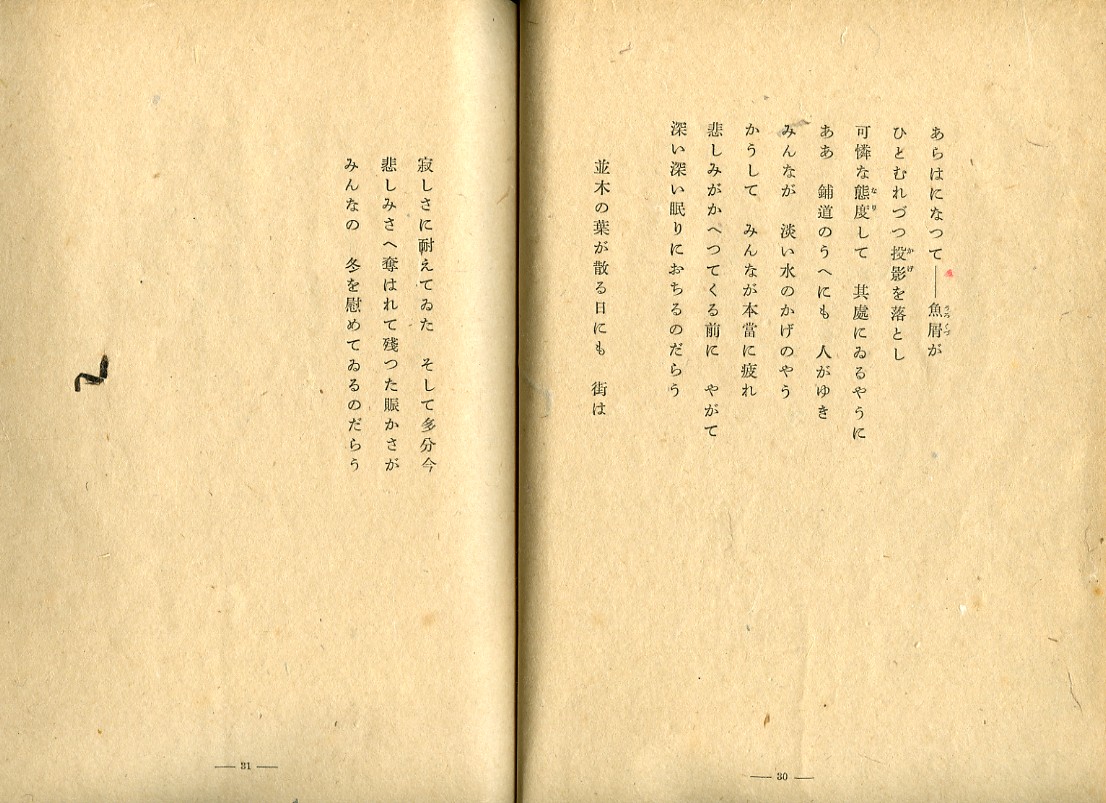 あらはになつて——魚屑が
うろくづ
ひとむれづつ投影を落とし
かげ
可憐な態度して　其處にゐるやうに
なり
ああ　鋪道のうへにも　人がゆき
みんなが　淡い水のかげのやう
かうして　みんなが本當に疲れ
悲しみがかへつてくる前に　やがて
深い深い眠りにおちるのだらう
並木の葉が散る日にも　街は
— 30 —
寂しさに耐えてゐた　そして多分今
悲しみさへ奪はれて殘つた賑かさが
みんなの　冬を慰めてゐるのだらう
— 31 —